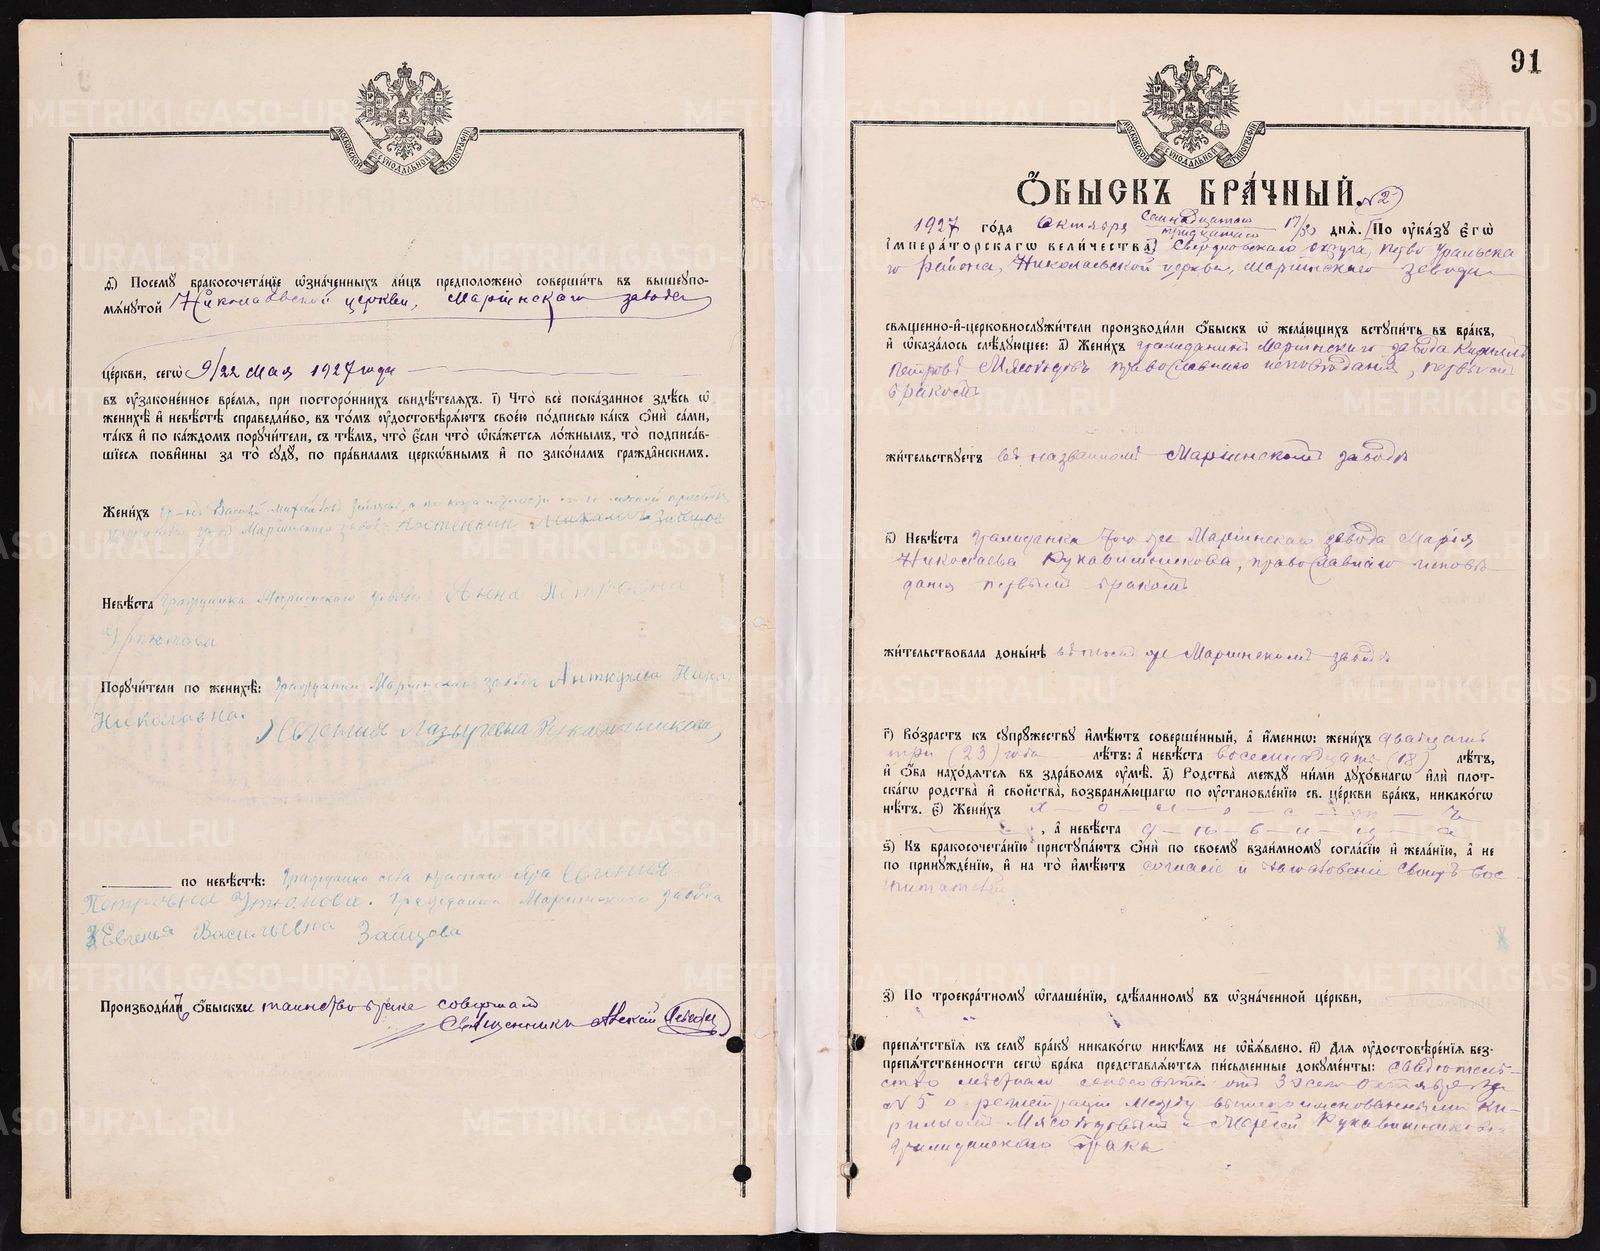 МОСКОВСКОЙ СУНОДАЛЬНОЙ ТИПОГРАФІИ
д҃) Посему̀ бракосочета́нїе ѡ҆зна́ченныхъ ли́цъ предположено̀ соверши́ть въ вышеупо-
мѧ́нутой Николаевской церкви, Маріинскаго завода
це́ркви, сегѡ̀ 9/22 мая 1927 года
въ ᲂу҆зако́ненное вре́мѧ, при посторо́ннихъ свидѣ́телѧхъ. і҃) Что̀ всѐ пока́занное здѣ́сь ѡ҆
женихѣ̀ и҆ невѣ́стѣ справедли́во, въ то́мъ ᲂу҆достовѣрѧ́ютъ свое́ю по́дписью ка́къ ѻ҆нѝ са́ми,
та́къ и҆ по ка́ждомъ поручи́тели, съ тѣ́мъ, что̀ є҆́сли что̀ ѡ҆ка́жетсѧ ло́жнымъ, то̀ подписа́в-
шїесѧ пови́нны за то̀ судꙋ̀, по пра́виламъ церко́внымъ и҆ по зако́намъ гражда́нскимъ.
Жени́хъ
Маріинскаго завода
Невѣ́ста Гражданка Маріинскаго завода Анна Петровна
Утюмова
Поручи́тели по женихѣ̀: Гражданка Маріинскаго завода Нина
Николовна. Евгения Лазыревна Рукавишникова,
по невѣ́стѣ: Гражданка села
Петровна Утюмова. Гражданка Маріинскаго завода
Евгенья Васильевна Зайцова
Производи́лъ ѻ҆́быскъ и таинство брака совершалъ
Священникъ
91
МОСКОВСКОЙ СУНОДАЛЬНОЙ ТИПОГРАФІИ
Ѻ҆́БЫСКЪ БРА́ЧНЫЙ. №2
1927 го́да Октября семнадцатаго / тридцатаго 17/30 днѧ̀. [По ᲂу҆ка́зу є҆гѡ̀
і҆мпера́торскагѡ вели́чества] Свердловскаго округа, Перво Уральска
го района, Николаевской церкви, Маріинскаго завода
свѧще́нно-и҆-церковнослужи́тели производи́ли ѻ҆́быскъ ѡ҆ жела́ющихъ вступи́ть въ бра́къ,
и҆ ѡ҆каза́лось слѣ́дующее: а҃) Жени́хъ гражданинъ Маріинскаго завода Кириллъ
Петровъ Мясоѣдовъ православнаго исповѣданія, первымъ
бракомъ
жи́тельствуетъ въ названномъ Маріинскомъ заводѣ
в҃) Невѣ́ста гражданка того же Маріинскаго завода Марія
Николаева Рукавишникова, православнаго исповѣ-
данія первымъ бракомъ
жи́тельствовала доны́нѣ въ томъ же Маріинскомъ заводѣ
г҃) Во́зрастъ къ супру́жеству и҆мѣ́ютъ соверше́нный, а҆ и҆́менно: жени́хъ двадцать
три (23) года лѣ́тъ: а҆ невѣ́ста восемнадцать (18) лѣ́тъ,
и҆ ѻ҆́ба нахо́дѧтсѧ въ здра́вомъ ᲂу҆мѣ̀. д҃) Родства̀ между ни́ми духо́внагѡ и҆лѝ плот-
ска́гѡ родства̀ и҆ сво́йства, возбранѧ́ющагѡ по ᲂу҆становле́нїю св. це́ркви бра́къ, никако́гѡ
нѣ́тъ. є҃) Жени́хъ х - о - л - о - с - т - ъ
, а҆ невѣ́ста д - ѣ - в - и - ц - а
ѕ҃) Къ бракосочета́нїю приступа́ютъ ѻ҆нѝ по своему̀ взаи́мному согла́сїю и҆ жела́нїю, а҆ не
по принужде́нїю, и҆ на то̀ и҆мѣ́ютъ согласіе и благословеніе своихъ вос-
питателей
з҃) По троекра́тному ѡ҆глаше́нїю, сдѣ́ланному въ ѡ҆зна́ченной це́ркви,
препѧ́тствїѧ къ сему̀ бра́ку никако́гѡ никѣ́мъ не ѡ҆б̾ѧ́влено. и҃) Для ᲂу҆достовѣре́нїѧ без-
препѧ́тственности сегѡ̀ бра́ка представлѧ́ютсѧ пи́сьменные докуме́нты: свидѣтель-
ство мѣстнаго сельсовѣта отъ 30 сего октября за
№ 5 о регистраціи между вышепоименованными Ки-
рилломъ Мясоѣдовымъ и Маріей Рукавишниковой
гражданскаго брака
METRIKI.GASO-URAL.RU